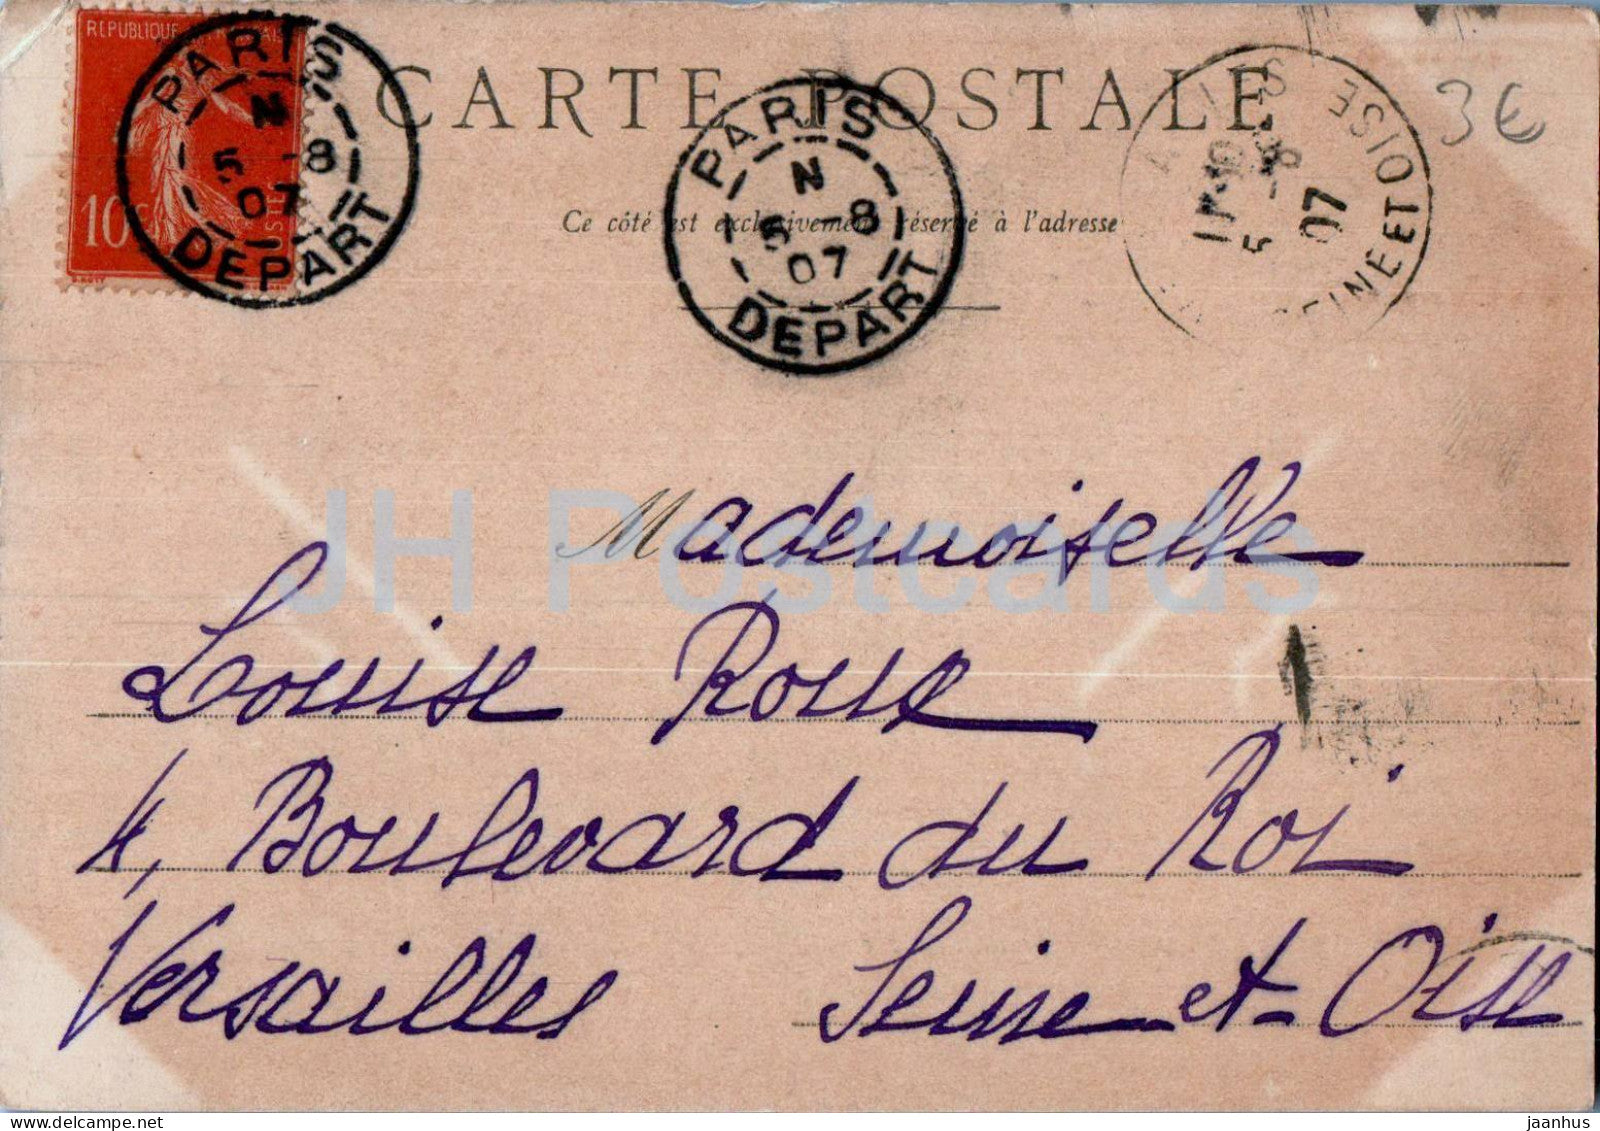 REPUBLIQUE FRANÇAISE
10c POSTES
PARIS
N
5 -8
07
DEPART
CARTE POSTALE
PARIS
N
5 -8
07
DEPART
17 30
5 -8
07
SEINE ET OISE
3€
Ce côté est exclusivement réservé à l'adresse
Mademoiselle
JH Postcards
Louise Roux
4, Boulevard du Roi
Versailles Seine-et-Oise
jaanhus